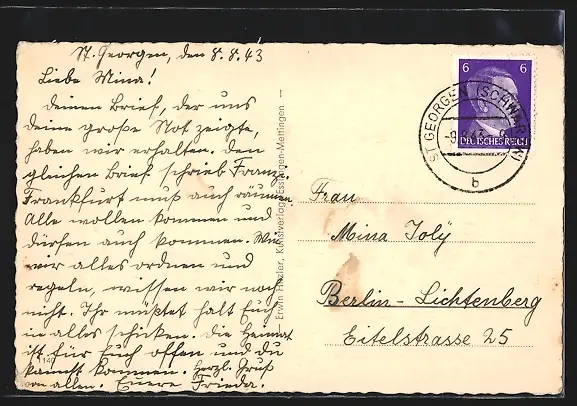 St. Georgen, den 8.8.43
Liebe Mina!
Deinen Brief, der uns
Deine große Not zeigte,
haben wir erhalten. Den
gleichen Brief schrieb Franz.
Frankfurt muß auch räumen
Alle wollen kommen und
dürfen auch kommen. Wie
wir alles ordnen und
regeln, wissen wir noch
nicht. Ihr müßtet halt Euch
in alles schicken. Die Heimat
ist für Euch offen und du
kannst kommen. Herzl. Gruß
von allen. Euere Frieda.
1140
Erwin Fritzler, Kunstverlag, Esslingen-Mettingen
6 6
DEUTSCHES REICH
ST GEORGEN (SCHWARZW)
-9.8.43
b
Frau
Mina Joly
Berlin-Lichtenberg
Eitelstrasse 25